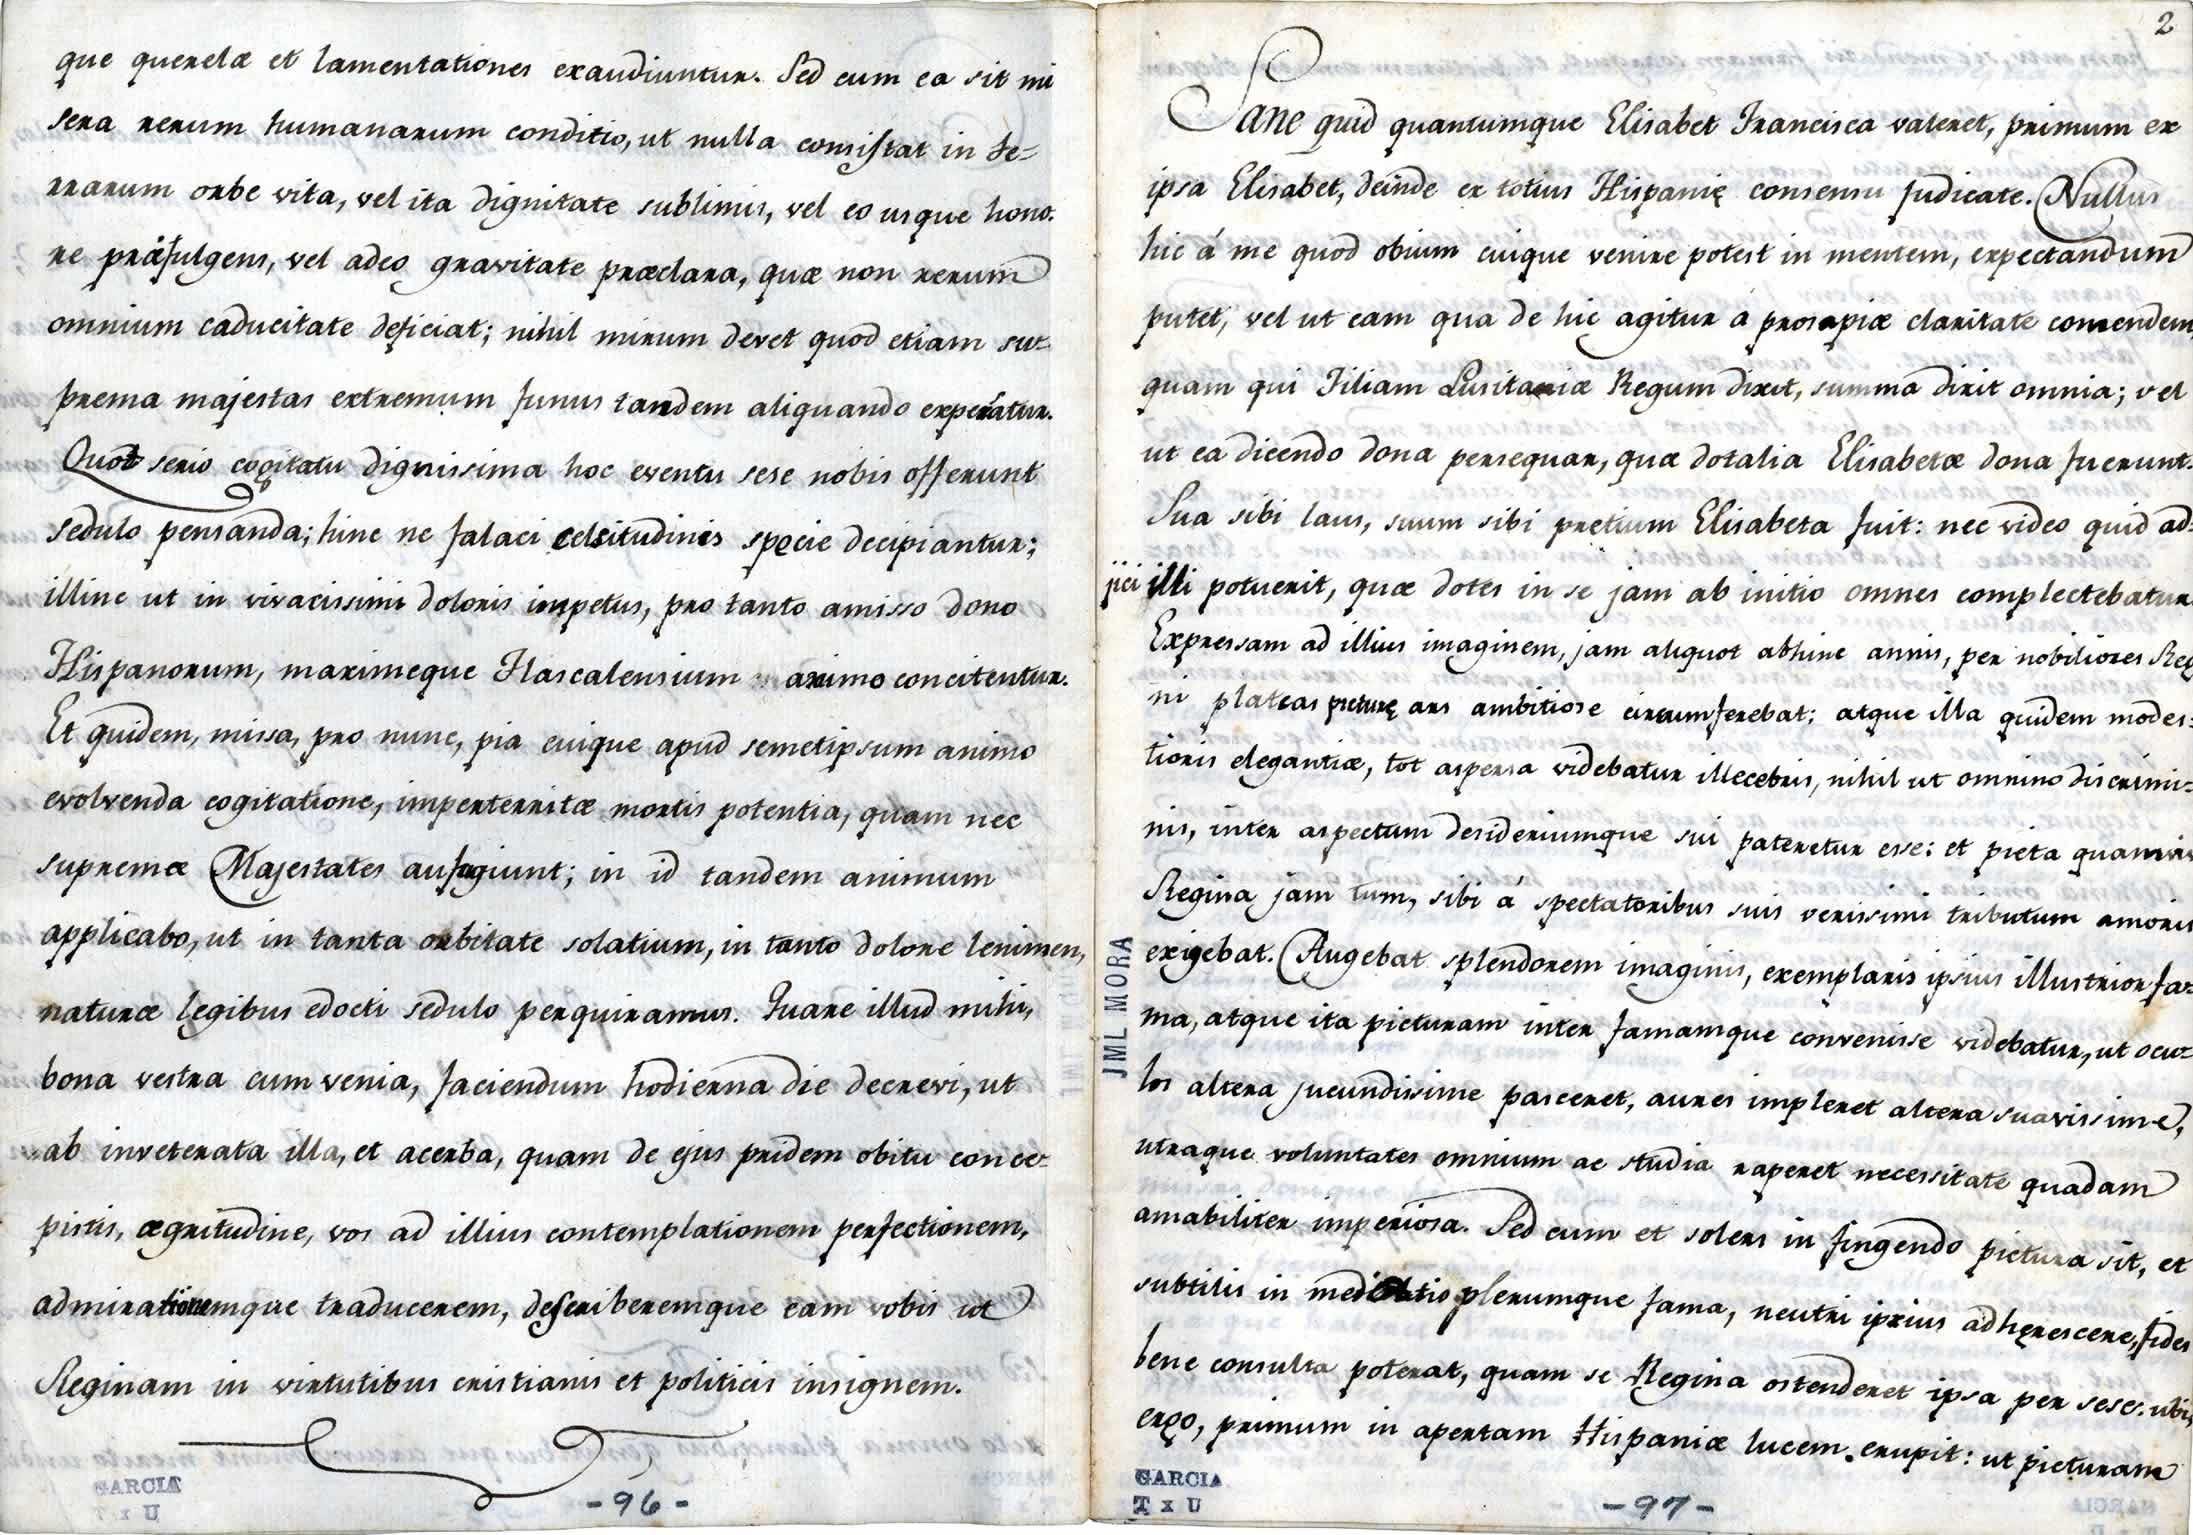 que querelæ et lamentationes exaudiuntur. Sed cum ea sit mi
sera rerum humanarum conditio, ut nulla consistat in te=
rrarum orbe vita, vel ita dignitate sublimis, vel eo usque hono.
re præfulgens, vel adeo gravitate præclara, quæ non rerum
omnium caducitate deficiat; nihil mirum devet quod etiam su=
prema majestas extremum funus tandem aliquando experiatur.
Quot serio cogitatu dignissima hoc eventu sese nobis offerunt
sedulo pensanda; hinc ne falaci celsitudinis specie decipiantur;
illinc ut in vivacissimi doloris impetus, pro tanto amisso dono
Hispanorum, maximeque Tlascalensium animo concitentur.
Et quidem, missa, pro nunc, pia cuique apud semetipsum animo
evolvenda cogitatione, imperterritæ mortis potentia, quam nec
supremæ Majestates aufugiunt; in id tandem animum
applicabo, ut in tanta orbitate solatium, in tanto dolore lenimen,
naturæ legibus edocti sedulo perquiramus. Quare illud mihi,
bona vestra cum venia, faciendum hodierna die decrevi, ut
ab inveterata illa, et acerba, quam de ejus pridem obitu conce=
pistis, ægritudine, vos ad illius contemplationem perfectionem,
admirationemque traducerem, describeremque eam vobis ut
Reginam in virtutibus cristianis et politicis insignem.
GARCIA
T x U
- 96 -
2
Sane quid quantumque Elisabet Francisca valeret, primum ex
ipsa Elisabet, deinde ex totius Hispanię consensu judicate. Nullus
hic á me quod obium cuique venire potest in mentem, expectandum
putet, vel ut eam qua de hic agitur á prosapiæ claritate comendem,
quam qui Filiam Lusitaniæ Regum dixit, summa dixit omnia; vel
ut ea dicendo dona persequar, quæ dotalia Elisabetæ dona fuerunt.
Sua sibi laus, suum sibi pretium Elisabeta fuit: nec video quid ad=
jici illi potuerit, quæ dotes in se jam ab initio omnes complectebatur.
Expressam ad illius imaginem, jam aliquot abhinc annis, per nobiliores Reg
ni plateas picturę ars ambitiose circumferebat; atque illa quidem modes=
tioris elegantiæ, tot aspersa videbatur illecebris, nihil ut omnino discrimi=
nis, inter aspectum desideriumque sui pateretur esse: et picta quamvis
Regina jam tum, sibi á spectatoribus suis verissimi tributum amoris
exigebat. Augebat splendorem imaginis, exemplaris ipsius illustrior fa=
ma, atque ita picturam inter famamque convenisse videbatur, ut ocu=
los altera jucundissime pasceret, aures impleret altera suavissime,
utraque voluntates omnium ac studia raperet necessitate quadam
amabiliter imperiosa. Sed cum et solers in fingendo pictura sit, et
subtilis in plerumque fama, neutri iprius adhęrescere, fides
bene consulta poterat, quam se Regina ostenderet ipsa per sese: ubi,
ergo, primum in apertam Hispaniæ lucem erupit: ut picturam
JML MORA
GARCIA
T x U
- 97 -